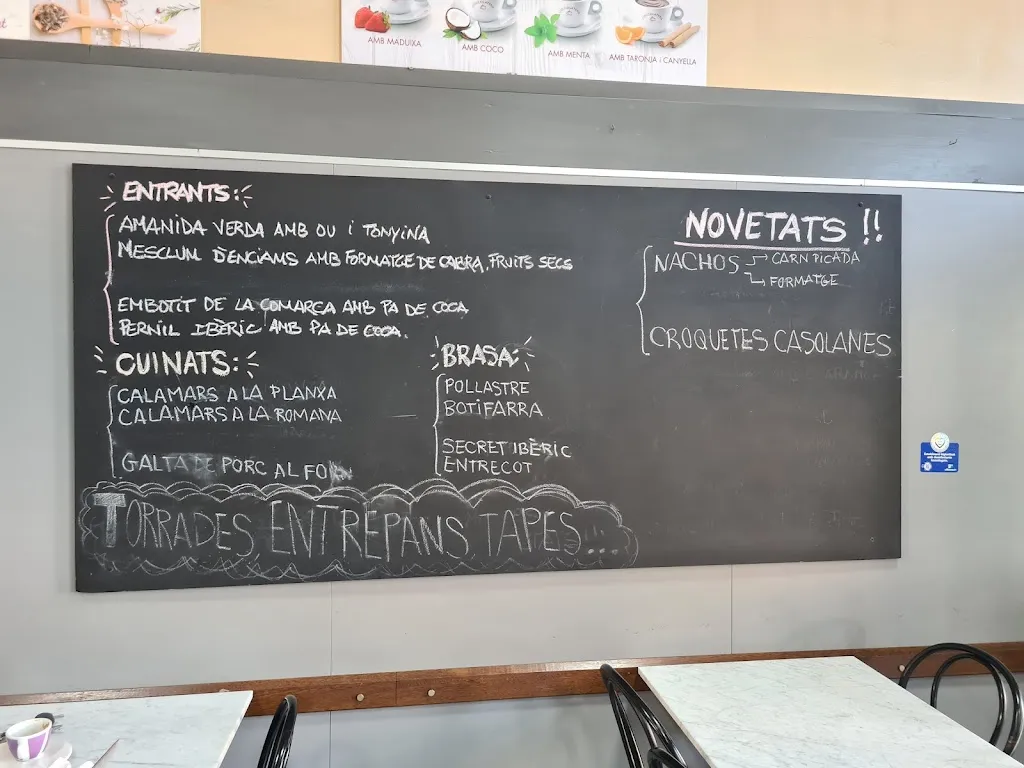 AMB MADUIXA
AMB COCO
AMB MENTA
AMB TARONJA i CANYELLA
ENTRANTS:
AMANIDA VERDA AMB OU i TONYINA
MESCLUM D'ENCIAMS AMB FORMATGE DE CABRA, FRUITS SECS
EMBOTIT DE LA COMARCA AMB PA DE COCA
PERNIL IBÈRIC AMB PA DE COCA.
CUINATS:
CALAMARS A LA PLANXA
CALAMARS A LA ROMANA
GALTA DE PORC AL FO
BRASA:
POLLASTRE
BOTIFARRA
SECRET IBÈRIC
ENTRECOT
TORRADES ENTREPANS TAPES...
NOVETATS !!
NACHOS → CARN PICADA
→ FORMATGE
CROQUETES CASOLANES